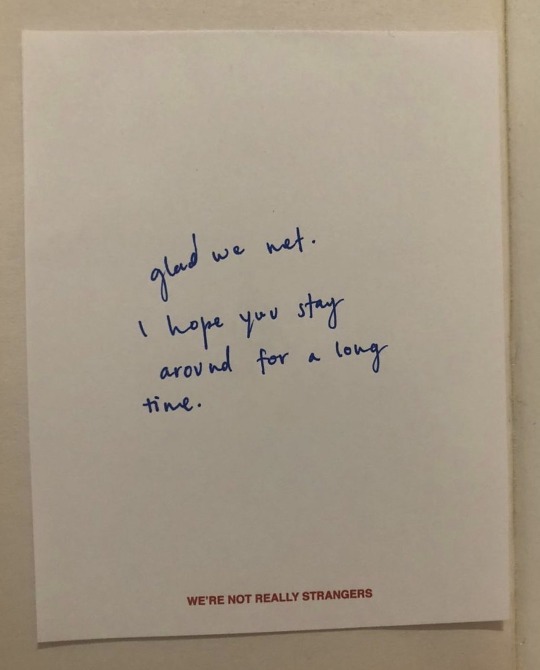 glad we met.
I hope you stay
around for a long
time.
WE'RE NOT REALLY STRANGERS